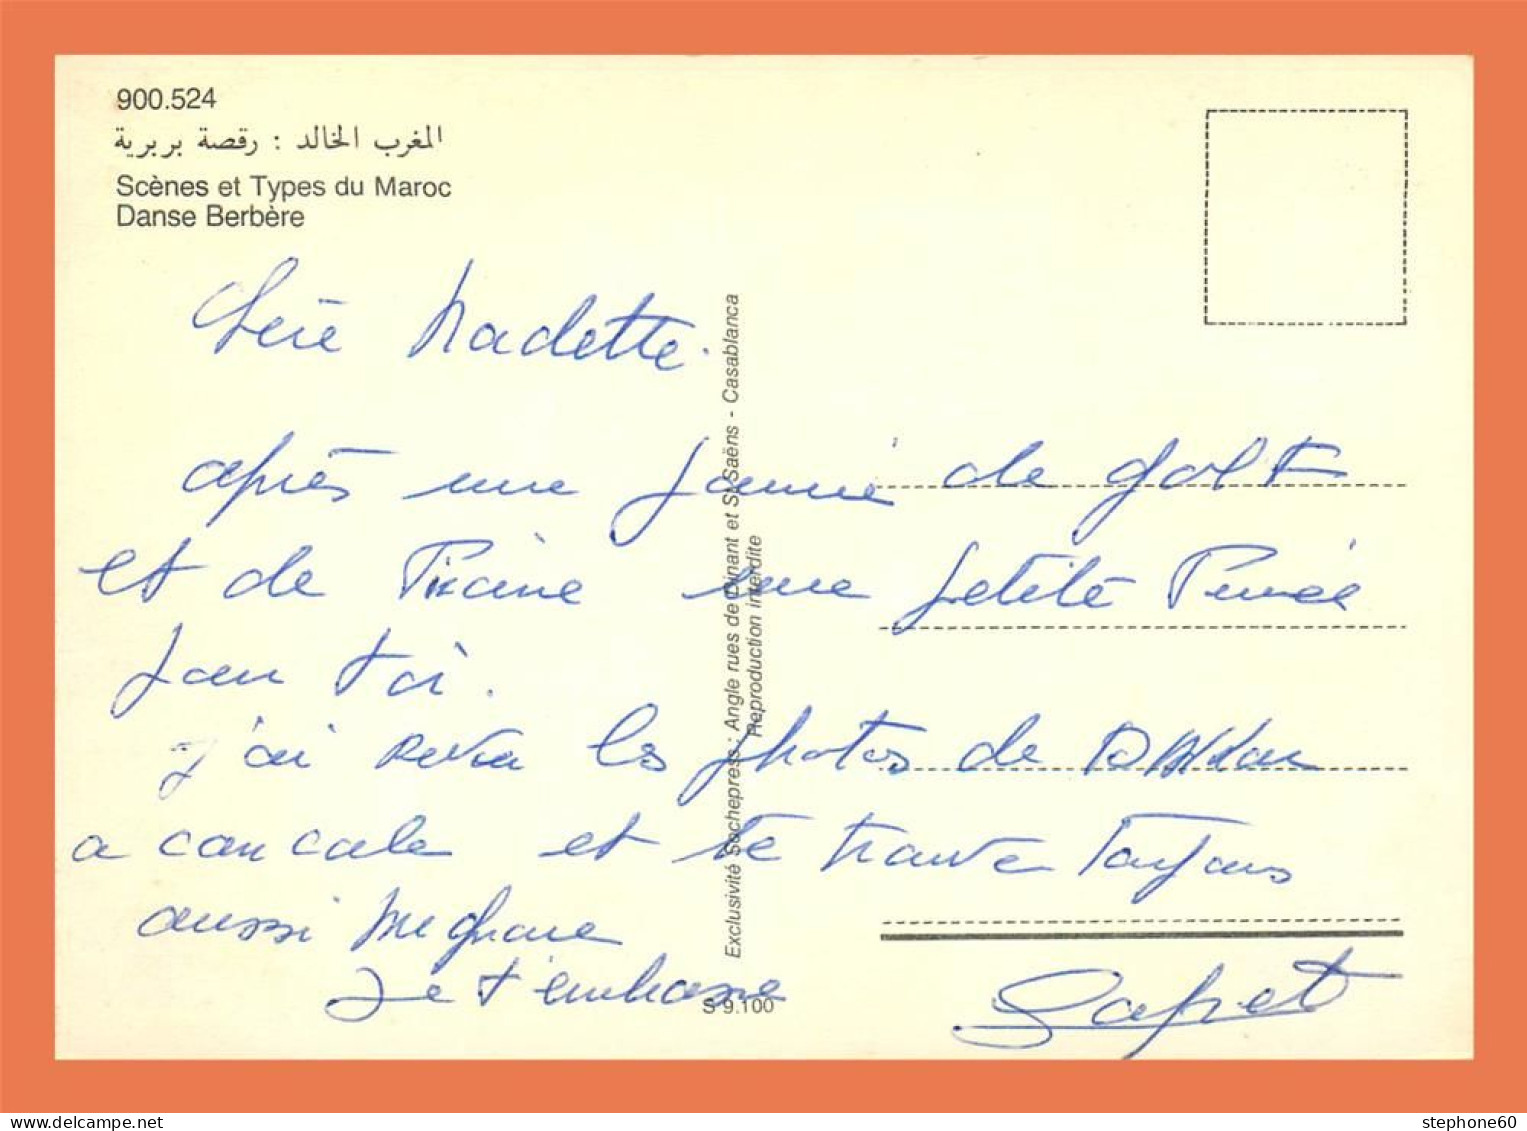 900.524
المغرب الخالد : رقصة بربرية
Scènes et Types du Maroc
Danse Berbère
Chère Nadette.
après une journée de golf
et de Piscine une petite Pensée
pour toi.
j'ai revu les photos de DAKar
a cancale et te trouve Toujours
aussi mignone
Je t'embrasse
Exclusivité Sochepress : Angle rues de Dinant et St Saëns - Casablanca
Reproduction interdite
S 9.100
stephone60